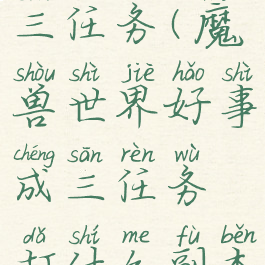 三任务(魔
shòu shì jiè hǎo shì
兽世界好事
chéng sān rèn wù
成三任务
dǎ shí me fù běn
打什么副本